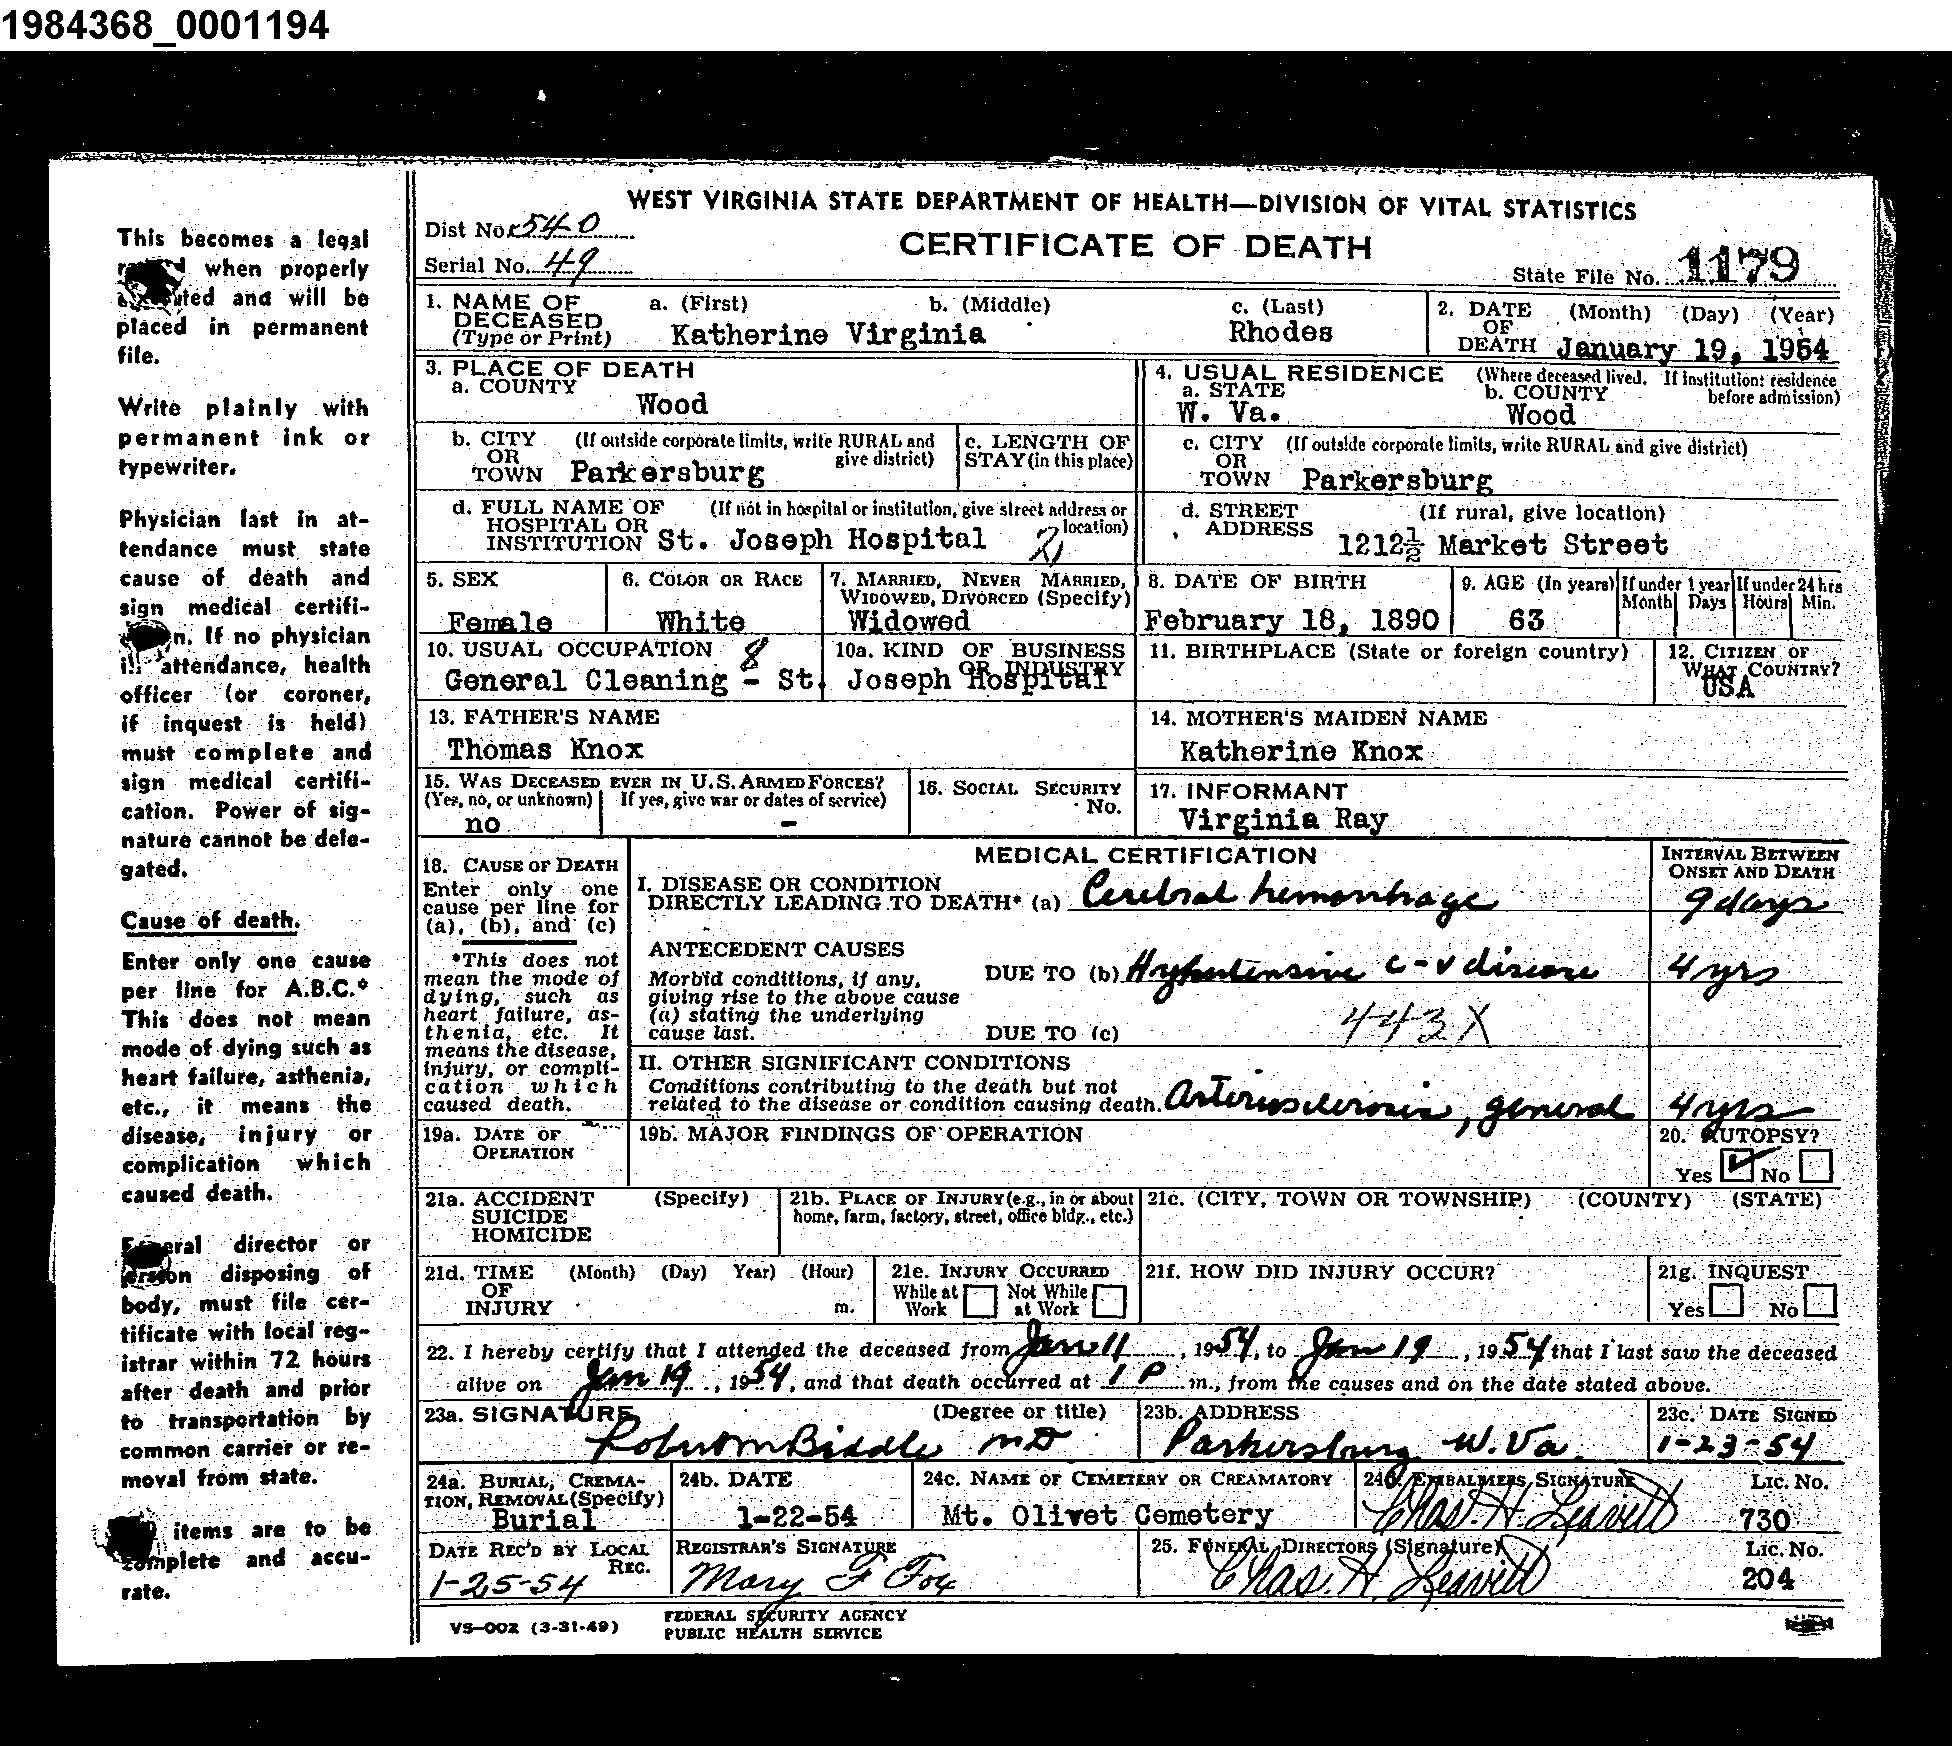 1984368_0001194
This becomes a legal
when properly
and will be
placed in permanent
file.
Write plainly with
permanent ink or
typewriter.
Physician last in at-
tendance must state
cause of death and
sign medical certifi-
If no physician
attendance, health
officer (or coroner,
if inquest is held)
must complete and
sign medical certifi-
cation. Power of sig-
nature cannot be dele-
gated.
Cause of death.
Enter only one cause
per line for A.B.C.*
This does not mean
mode of dying such as
heart failure, asthenia,
etc., it means the
disease, injury or
complication which
caused death.
Funeral director or
person disposing of
body, must file cer-
tificate with local reg-
istrar within 72 hours
after death and prior
to transportation by
common carrier or re-
moval from state.
items are to be
complete and accu-
rate.
WEST VIRGINIA STATE DEPARTMENT OF HEALTH—DIVISION OF VITAL STATISTICS
Dist No. 540
CERTIFICATE OF DEATH
Serial No. 49
State File No. 1179
1. NAME OF DECEASED (Type or Print) a. (First) b. (Middle) c. (Last)
Katherine Virginia Rhodes
2. DATE OF DEATH (Month) (Day) (Year)
January 19, 1954
3. PLACE OF DEATH
a. COUNTY
Wood
4. USUAL RESIDENCE (Where deceased lived. If institution: residence before admission)
a. STATE b. COUNTY
W. Va. Wood
b. CITY OR TOWN (If outside corporate limits, write RURAL and give district)
Parkersburg
c. LENGTH OF STAY (in this place)
c. CITY OR TOWN (If outside corporate limits, write RURAL and give district)
Parkersburg
d. FULL NAME OF HOSPITAL OR INSTITUTION (If not in hospital or institution, give street address or location)
St. Joseph Hospital 2
d. STREET ADDRESS (If rural, give location)
1212½ Market Street
5. SEX
Female
6. COLOR OR RACE
White
7. MARRIED, NEVER MARRIED, WIDOWED, DIVORCED (Specify)
Widowed
8. DATE OF BIRTH
February 18, 1890
9. AGE (In years)
63
If under 1 year
Month Days
If under 24 hrs
Hours Min.
10. USUAL OCCUPATION 8
10a. KIND OF BUSINESS OR INDUSTRY
General Cleaning - St. Joseph Hospital
11. BIRTHPLACE (State or foreign country)
12. CITIZEN OF WHAT COUNTRY?
USA
13. FATHER'S NAME
Thomas Knox
14. MOTHER'S MAIDEN NAME
Katherine Knox
15. WAS DECEASED EVER IN U.S. ARMED FORCES?
(Yes, no, or unknown) If yes, give war or dates of service)
no -
16. SOCIAL SECURITY No.
17. INFORMANT
Virginia Ray
18. CAUSE OF DEATH
Enter only one
cause per line for
(a), (b), and (c)
*This does not
mean the mode of
dying, such as
heart failure, as-
thenia, etc. It
means the disease,
injury, or compli-
cation which
caused death.
MEDICAL CERTIFICATION
INTERVAL BETWEEN ONSET AND DEATH
I. DISEASE OR CONDITION
DIRECTLY LEADING TO DEATH* (a) Cerebral hemorrhage 9 days
ANTECEDENT CAUSES
Morbid conditions, if any,
giving rise to the above cause
(a) stating the underlying
cause last.
DUE TO (b) Hypertensive c-v disease 4 yrs
DUE TO (c)
443X
II. OTHER SIGNIFICANT CONDITIONS
Conditions contributing to the death but not
related to the disease or condition causing death. Arteriosclerosis, general 4 yrs
19a. DATE OF OPERATION
19b. MAJOR FINDINGS OF OPERATION
20. AUTOPSY?
Yes ✓ No
21a. ACCIDENT SUICIDE HOMICIDE (Specify)
21b. PLACE OF INJURY (e.g., in or about home, farm, factory, street, office bldg., etc.)
21c. (CITY, TOWN OR TOWNSHIP) (COUNTY) (STATE)
21d. TIME OF INJURY (Month) (Day) Year) (Hour) m.
21e. INJURY OCCURRED
While at Work Not While at Work
21f. HOW DID INJURY OCCUR?
21g. INQUEST
Yes No
22. I hereby certify that I attended the deceased from Jan 11, 1954, to Jan 19, 1954 that I last saw the deceased
alive on Jan 19, 1954, and that death occurred at 1 P m., from the causes and on the date stated above.
23a. SIGNATURE (Degree or title)
Robert M Biddle MD
23b. ADDRESS
Parkersburg W. Va.
23c. DATE SIGNED
1-23-54
24a. BURIAL, CREMATION, REMOVAL (Specify)
Burial
24b. DATE
1-22-54
24c. NAME OF CEMETERY OR CREAMATORY
Mt. Olivet Cemetery
24d. EMBALMERS SIGNATURE Lic. No.
Chas. H. Leavitt 730
DATE REC'D BY LOCAL REG.
1-25-54
REGISTRAR'S SIGNATURE
Mary F Fox
25. FUNERAL DIRECTORS (Signature) Lic. No.
Chas. H. Leavitt 204
VS-002 (3-31-49)
FEDERAL SECURITY AGENCY
PUBLIC HEALTH SERVICE